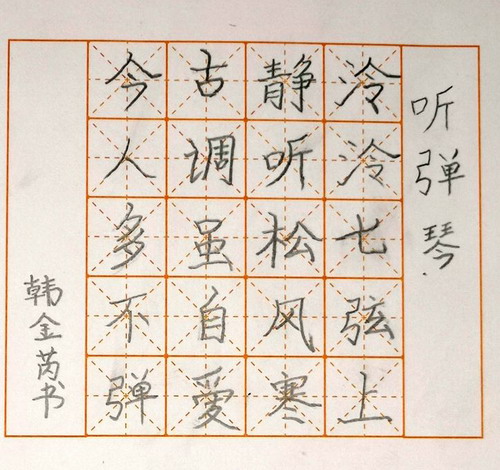 听弹琴
泠泠七弦上
静听松风寒
古调虽自愛
今人多不弹
韩金芮书